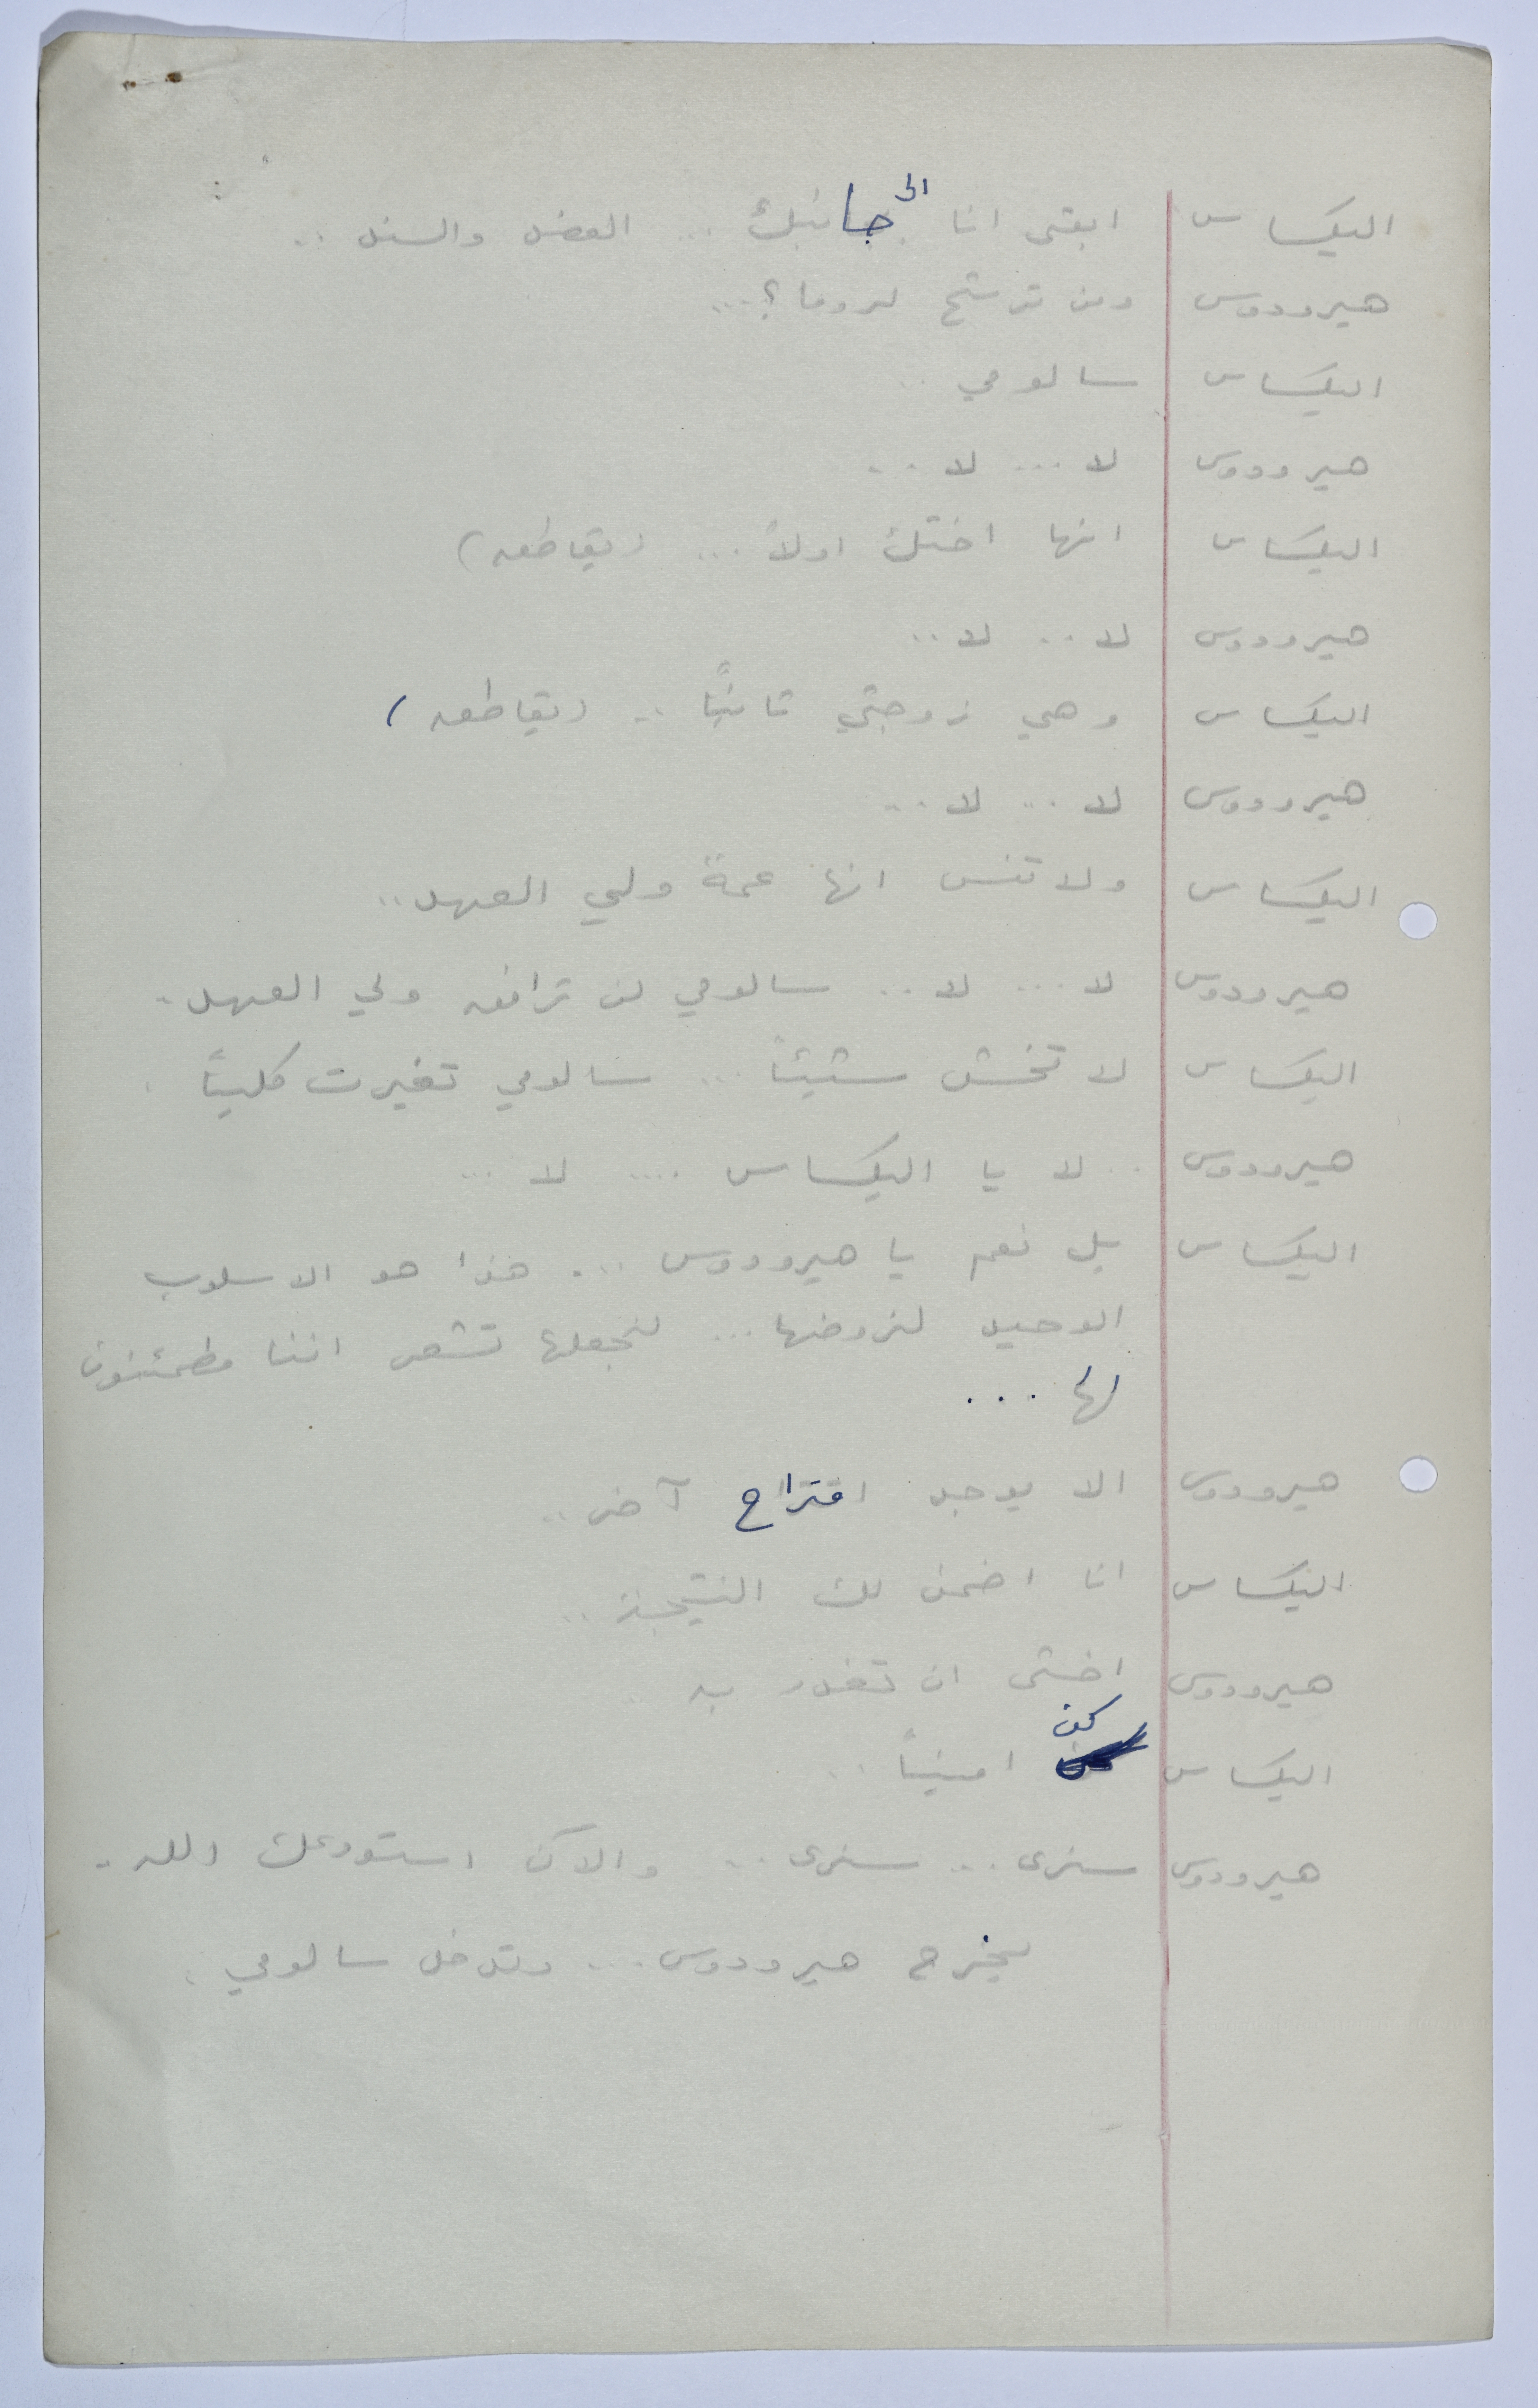 اليكساس ابقى انا الى جانبك ... العضد والسند ..
هيرودوس ومن ترشح لروما؟ ...
اليكساس سالومي ..
هيرودوس لا ... لا ..
اليكساس انها اختك اولاً ... (يقاطعه)
هيرودوس لا .. لا ..
اليكساس وهي زوجتي ثانيًا .. (يقاطعه)
هيرودوس لا ... لا ...
اليكساس ولا تنس انها عمة ولي العهد ..
هيرودوس لا ... لا .. سالومي لن ترافق ولي العهد ..
اليكساس لا تخش شيئاً ... سالومي تغيرت كلياً .
هيرودوس .. لا يا اليكساس .... لا ...
اليكساس بل نعم يا هيرودوس ... هذا هو الاسلوب
الوحيد لنروضها ... لنجعلها تشعر اننا مطمئنون
لها ...
هيرودوس الا يوجد اقتراح آخر ..
اليكساس انا اضمن لك النتيجة ..
هيرودوس اخشى ان تغدر به ..
اليكساس كن اميناً ..
هيرودوس سنرى ... سنرى .. والآن استودعك الله ..
يخرج هيرودوس ... وتدخل سالومي .